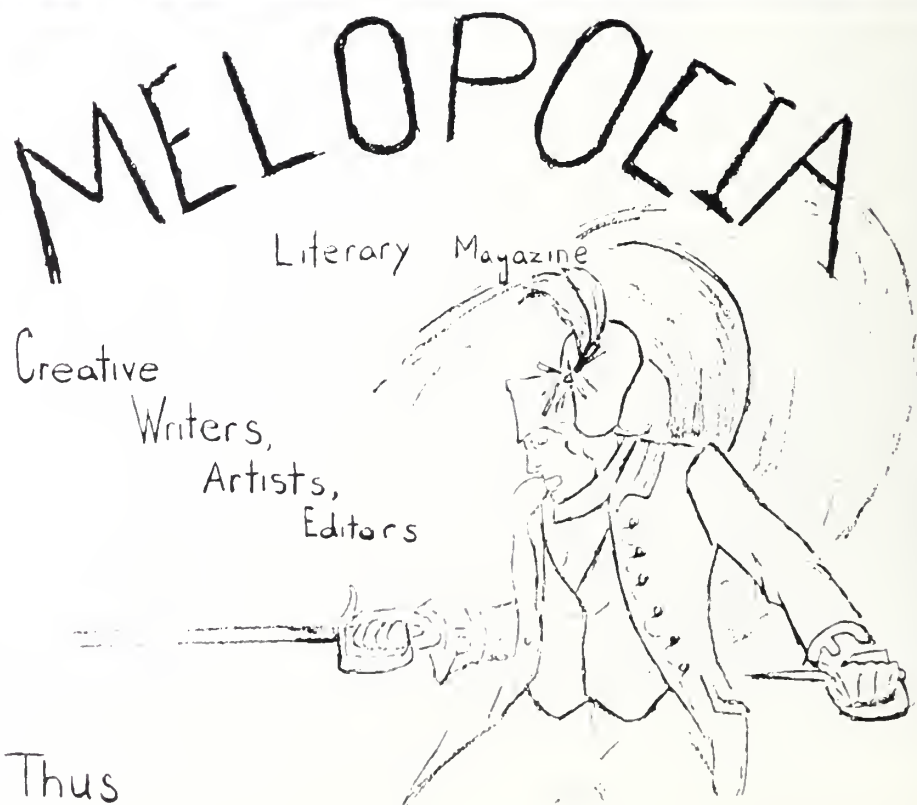 MELOPOEIA
Literary Magazine
Creative
Writers,
Artists,
Editors
Thus